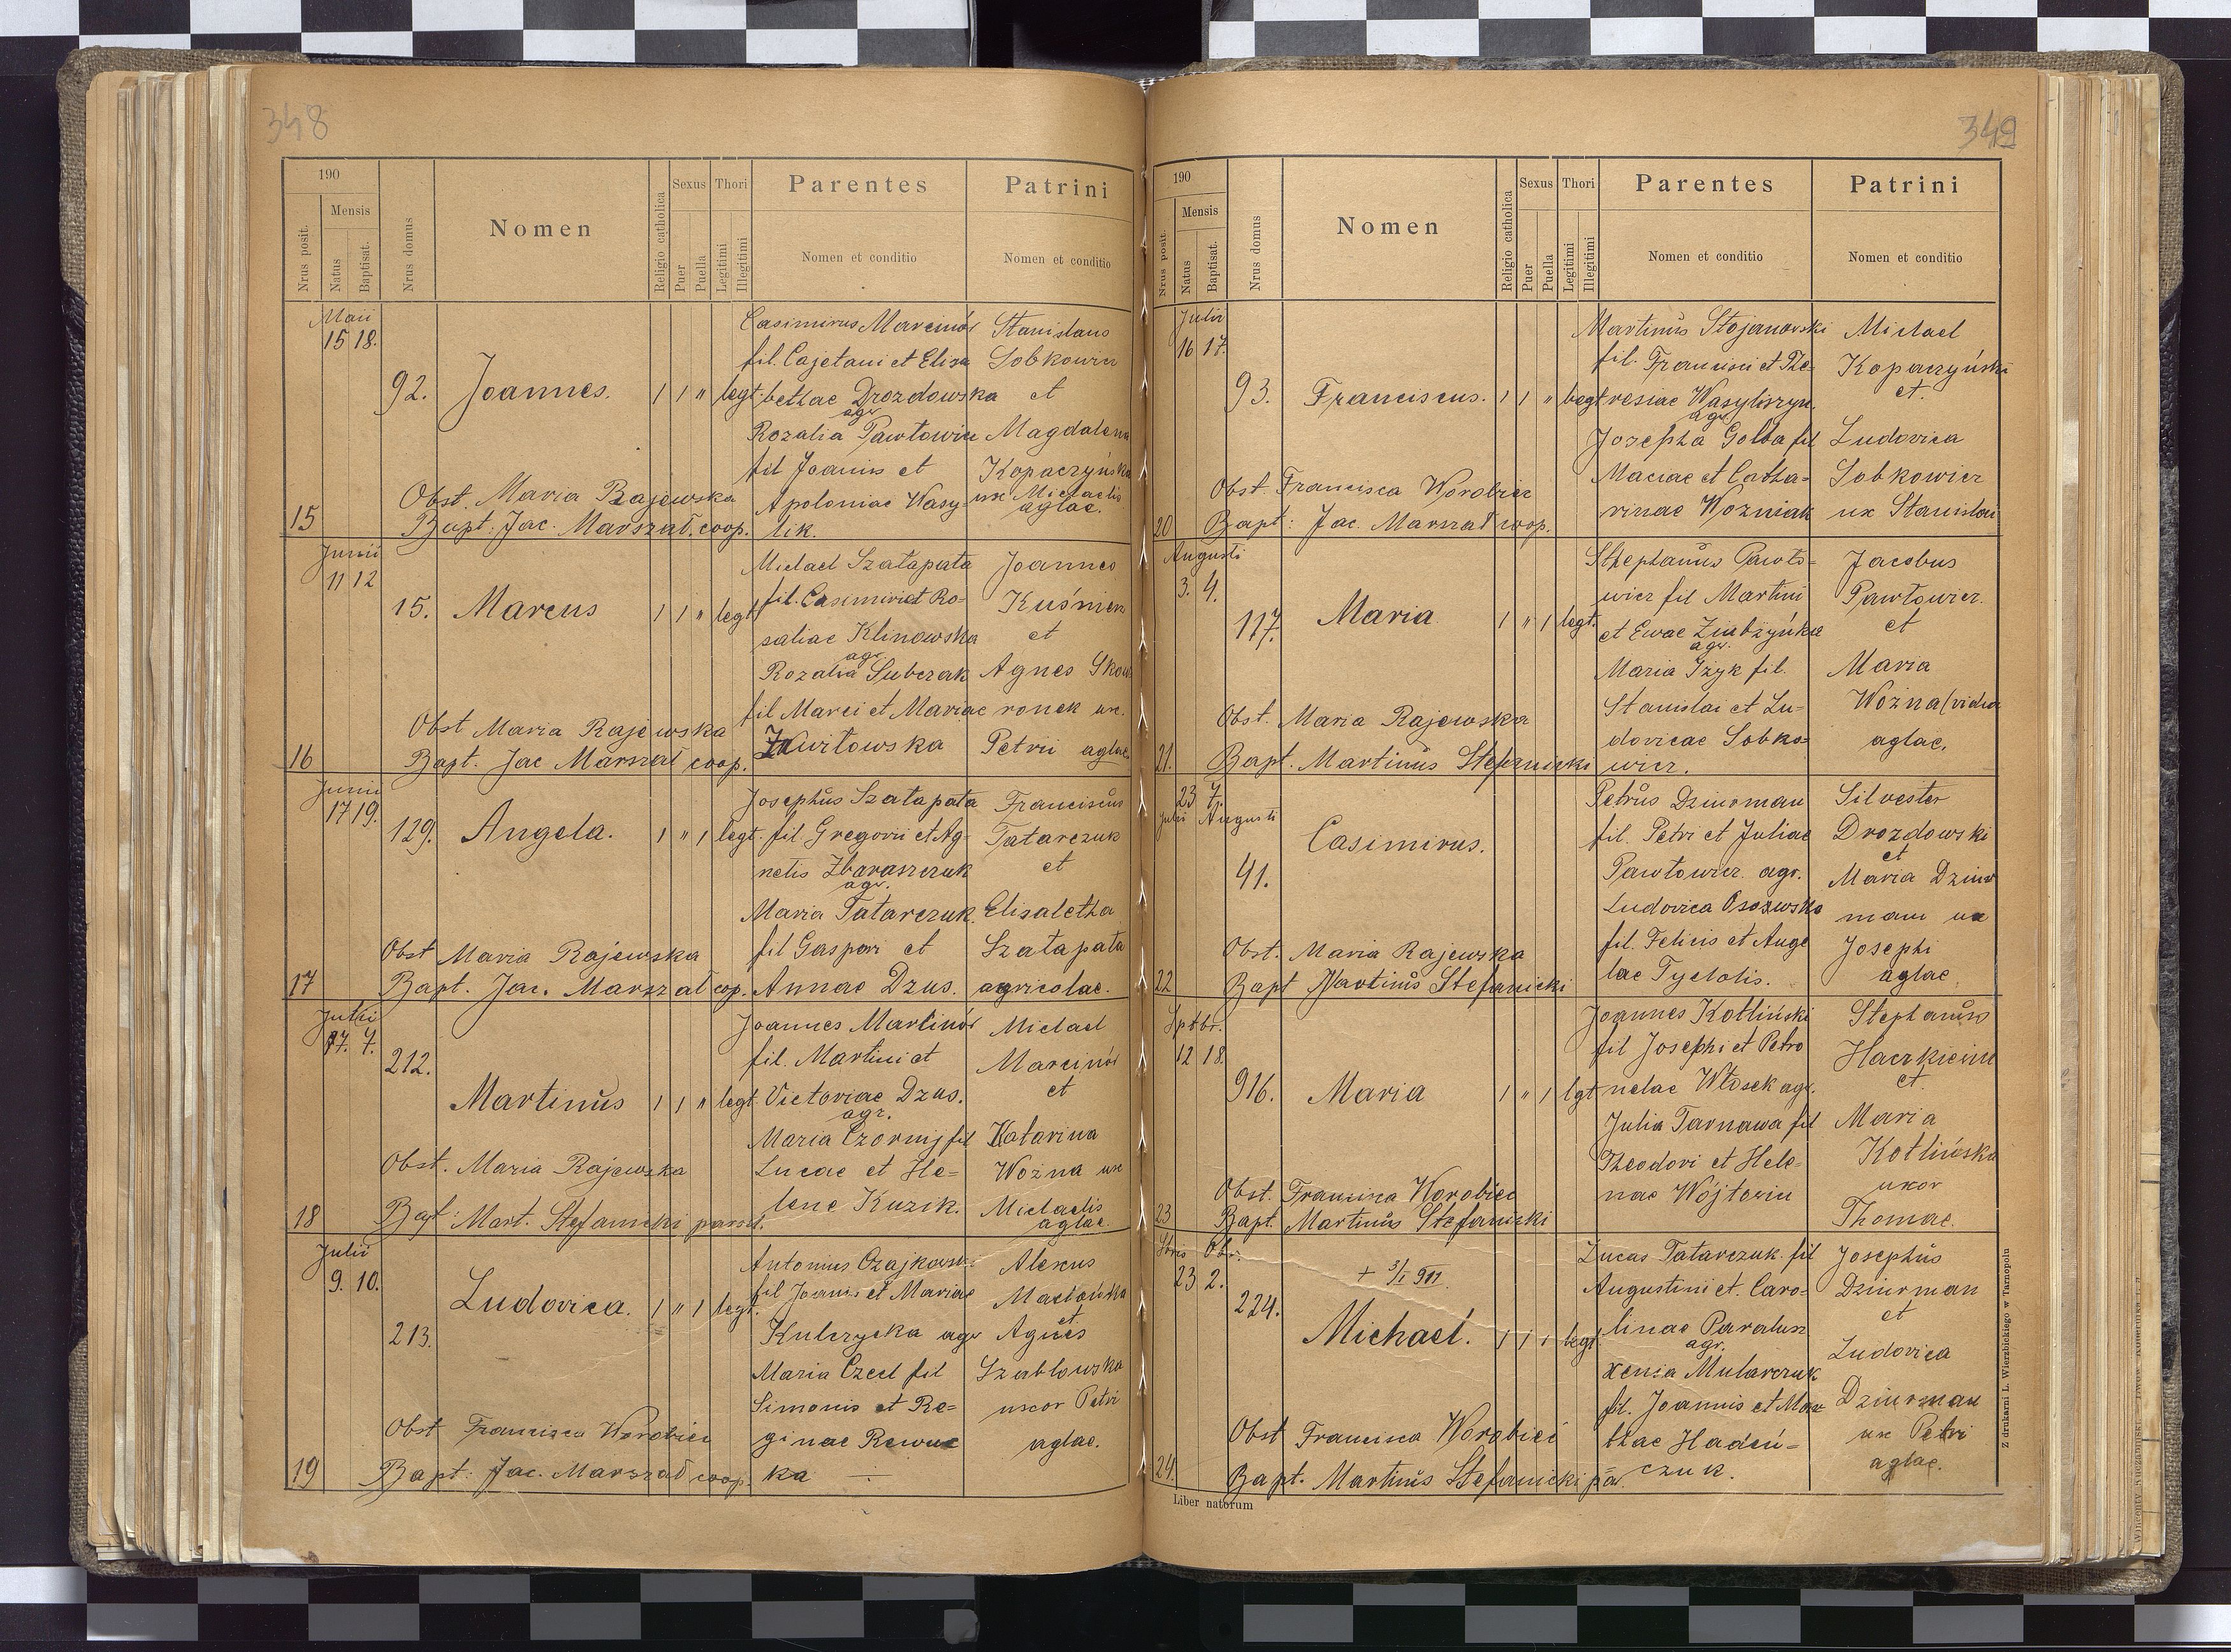 348
190
Mensis
Nrus posit.
Natus
Baptisat.
Nrus domus
Nomen
Religio catholica
Sexus
Puer
Puella
Thori
Legitimi
Illegitimi
Parentes
Nomen et conditio
Patrini
Nomen et conditio
Maii
15 18.
92. Joannes. 1 1 " legt.
Casimirus Marcinów
fil. Cajetani et Elisa
bethae Drozdowska
agr.
Rozalia Pawłowicz
fil Joannis et
Apoloniae Wasy-
lik.
Stanislaus
Sobkowicz
et
Magdalena
Kopaczyńska
ux Michaelis
aglae.
Obst. Maria Rajewska
15 Bapt. Jac. Marszał. coop.
Junii
11 12
15. Marcus 1 1 " legt
Michael Szałapata
fil. Casimiri et Ro-
saliae Klinowska
agr.
Rozalia Subczak
fil Marci et Mariae
Kwitowska
Joannes
Kuśnierz
et
Agnes Skow
ronek ux.
Petri aglae
Obst Maria Rajewska
16 Bapt. Jac Marszał coop.
Junii
17 19.
129. Angela. 1 " 1 legt.
Josephus Szałapata
fil Gregorii et Ag-
netis Zbaraszczuk
agr.
Maria Tatarczuk
fil Gaspari et
Annae Dzus.
Franciscus
Tatarczuk
et
Elisabetha
Szałapata
agricolae.
Obst Maria Rajewska
17 Bapt. Jac. Marszał cop.
Julii
7. 7.
212.
Martinus 1 1 " legt
Joannes Marcinów
fil. Martini et
Victoriae Dzus.
agr.
Maria Czornij fil
Lucae et He-
lene Kuzik.
Michael
Marcinów
et
Katarina
Woźna ux
Michaelis
aglae.
Obst. Maria Rajewska
18 Bapt. Mart. Stefanicki paroch.
Julii
9. 10.
213.
Ludovica. 1 " 1 legt.
Antonius Czajkowski
fil Joannis et Mariae
Kulczycka agr
Maria Czech fil
Simonis et Re-
ginae Rewuc
ka
Alexus
et
Agnes
Szablowska
uxor Petri
aglae.
Obst Francisca Worobiec
19 Bapt: Jac. Marszał coop.
349
190
Mensis
Nrus posit.
Natus
Baptisat.
Nrus domus
Nomen
Religio catholica
Sexus
Puer
Puella
Thori
Legitimi
Illegitimi
Parentes
Nomen et conditio
Patrini
Nomen et conditio
Julii
16 17.
93. Franciscus. 1 1 " legt
Martinus Stojanowski
fil. Francisci et The-
resiae Wasyliszyn.
agr.
Josepha Golba fil
Maciae et Catha-
rinae Wozniak
Michael
Kopaczyński
et.
Ludovica
Sobkowicz
ux Stanislai
Obst. Francisca Worobiec
20 Bapt: Jac. Marszał coop.
Augusti
3. 4.
117. Maria 1 " 1 legt.
Stephanus Pawło-
wicz fil Martini
et Ewae Ziubżyńska
agr.
Maria Izyk fil.
Stanislai et Lu-
dovicae Sobko-
wicz.
Jacobus
Pawłowicz.
et
Maria
Woźna (vidua
aglae.
Obst. Maria Rajewska
21. Bapt. Martinus Stefanicki
23 7.
Julii Augusti
41. Casimirus.
Petrus Dziurman
fil. Petri et Juliae
Pawłowicz agr.
Ludovica Ososwska
fil. Felicis et Ange
lae Tycholis.
Silvester
Drozdowski
et
Maria Dziur
man ux
Josephi
aglae
Obst. Maria Rajewska
22 Bapt Martinus Stefanicki
Sptbr.
12 18.
916. Maria 1 " 1 lgt
Joannes Kotliński
fil Josephi et Petro
nelae Włosek agr.
Julia Tarnawa fil
Theodori et Hele-
nae Wójtowicz
Stephanus
Haczkiewicz
et.
Maria
Kotlińska
uxor
Thomae.
Obst. Francisca Worobiec
23 Bapt. Martinus Stefanicki
Sbris Obr.
23 2.
224.
+ 3/I 911.
Michael. 1 1 1 legt.
Lucas Tatarczuk fil
Augustini et. Caro-
linae Paralusz
agr.
Xenia Mularczuk
fil. Joannis et Mar
thae Hadeń-
czuk.
Josephus
Dziurman
et
Ludovica
Dziurman
ux Petri
aglae.
Obst Francisca Worobiec
24. Bapt. Martinus Stefanicki par.
Liber natorum
Z drukarni L. Wierzbickiego w Tarnopolu